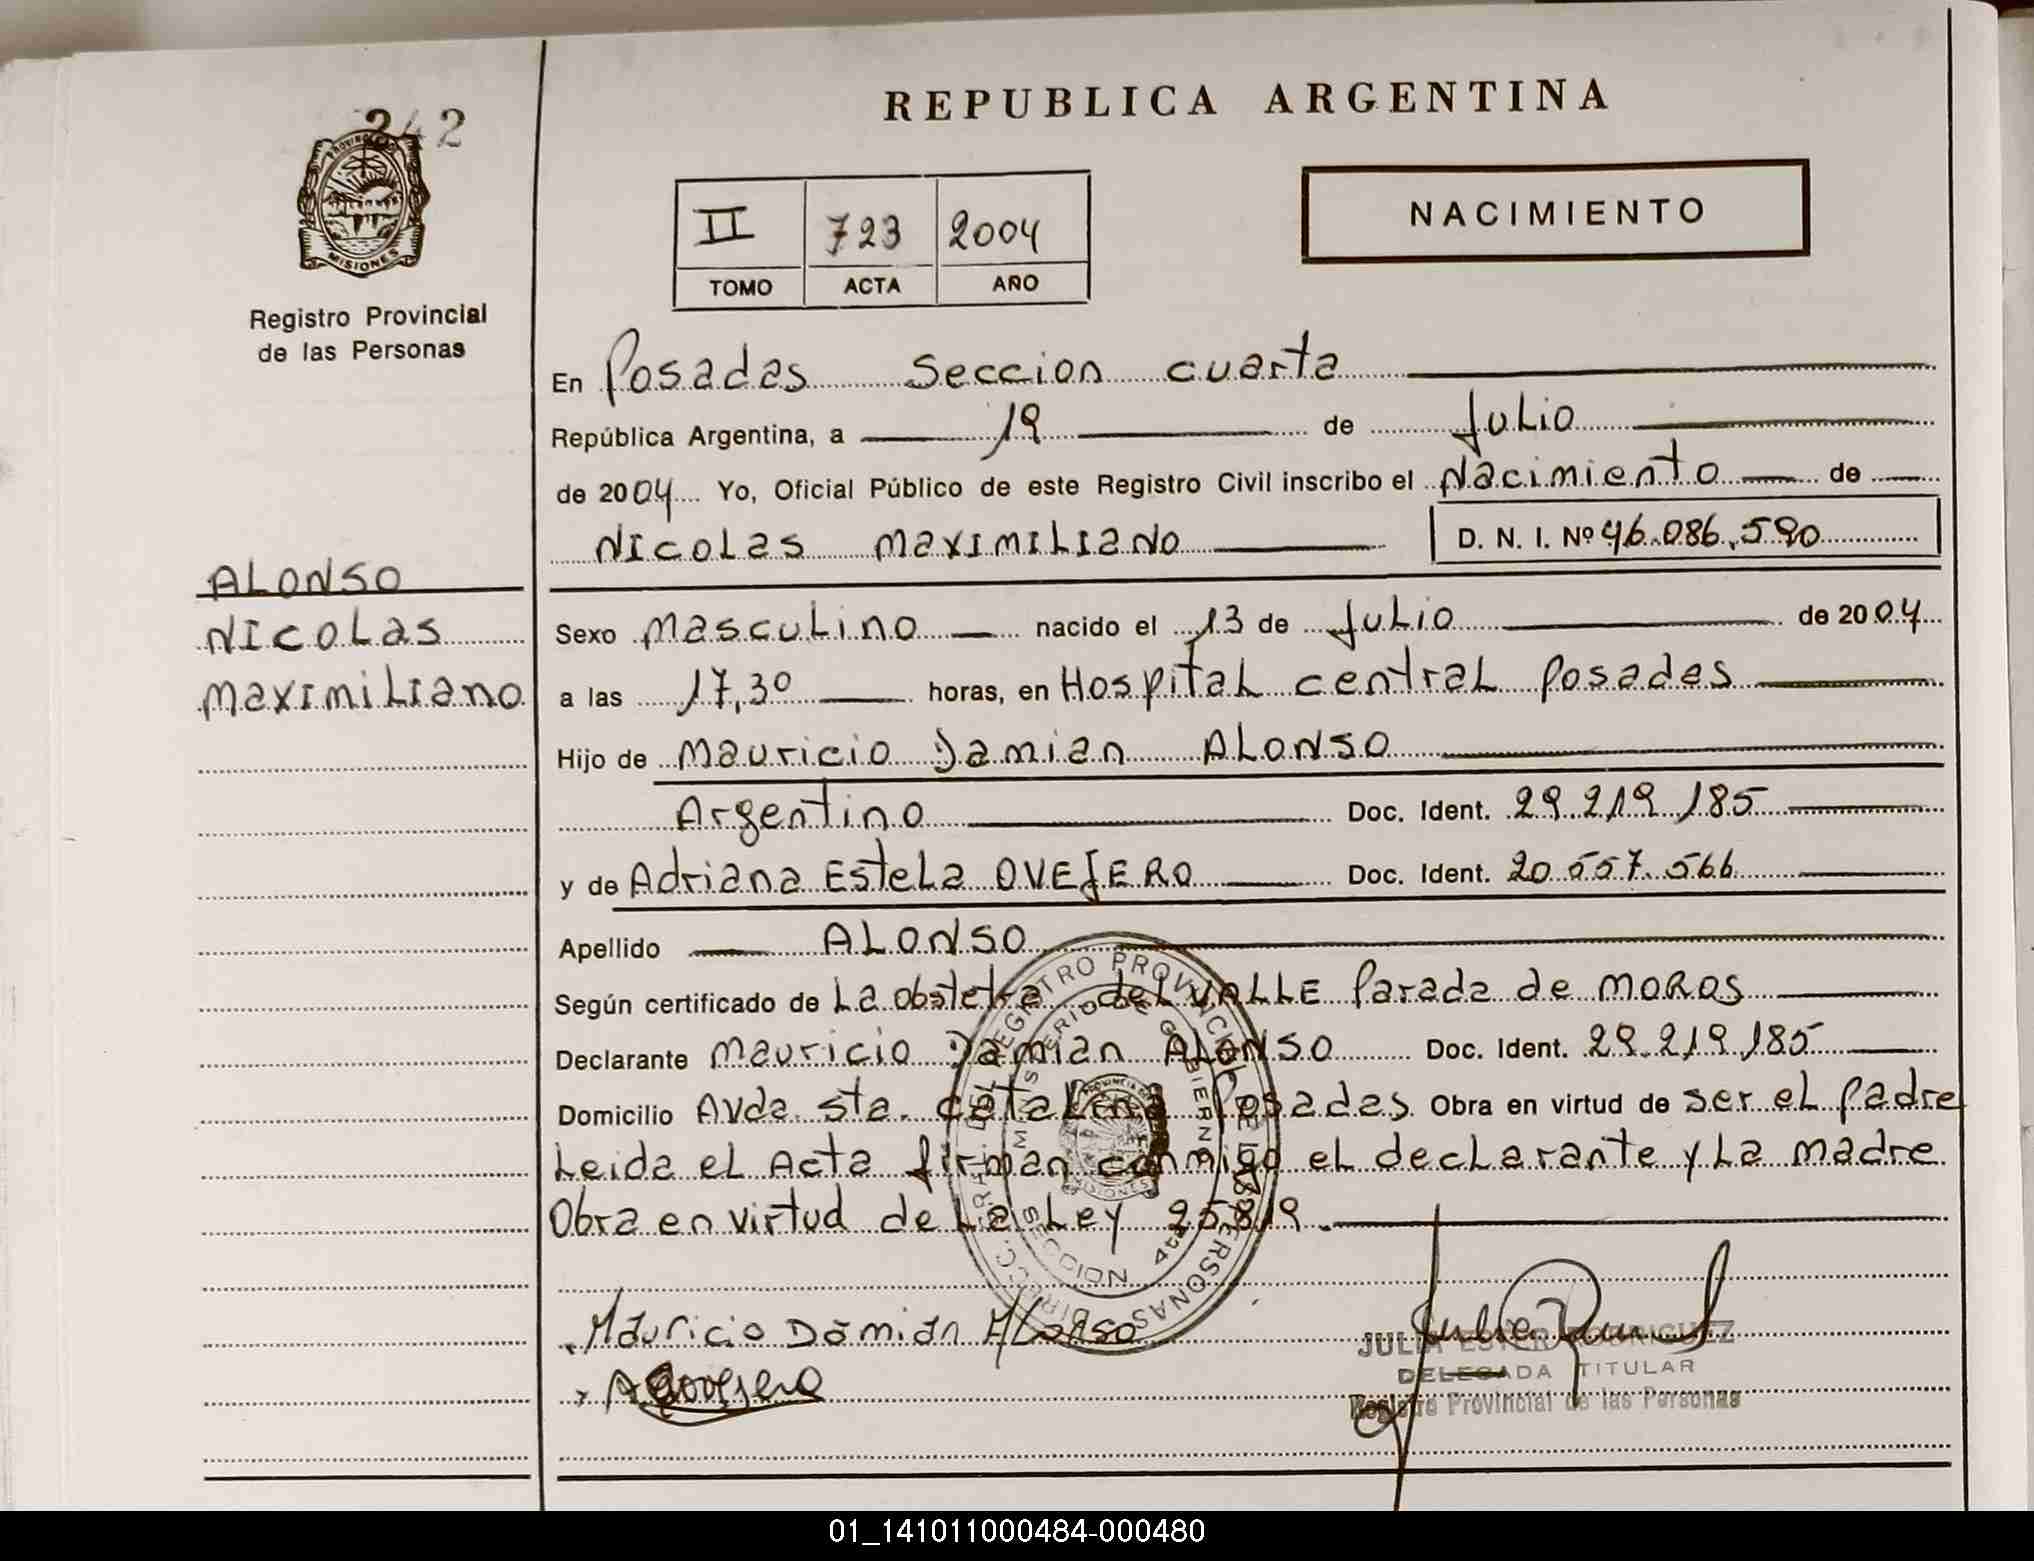 242
PROVINCIA DE
MISIONES
Registro Provincial
de las Personas
ALONSO
Nicolas
Maximiliano
REPUBLICA ARGENTINA
II 723 2004
TOMO ACTA AÑO
NACIMIENTO
En Posadas Seccion cuarta
República Argentina, a 19 de Julio
de 2004 Yo, Oficial Público de este Registro Civil inscribo el Nacimiento de
Nicolas Maximiliano D. N. I. Nº 46.086.590
Sexo Masculino nacido el 13 de Julio de 2004
a las 17,30 horas, en Hospital central Posadas
Hijo de Mauricio Damian ALONSO
Argentino Doc. Ident. 29.219.185
y de Adriana Estela OVEJERO Doc. Ident. 20.557.566
Apellido ALONSO
Según certificado de La obstetra del VALLE Parada de MOROS
Declarante Mauricio Damian ALONSO Doc. Ident. 29.219.185
Domicilio Avda. Sta. Catalina Posadas Obra en virtud de ser el padre
Leida el Acta firman conmigo el declarante y La madre
Obra en virtud de La Ley 25.819.
REGISTRO PROVINCIAL DE LAS PERSONAS
MINISTERIO DE GOBIERNO
SECCION 4ta
Mauricio Damian Alonso
JULIA ESTER RODRIGUEZ
DELEGADA TITULAR
Registro Provincial de las Personas
01_141011000484-000480